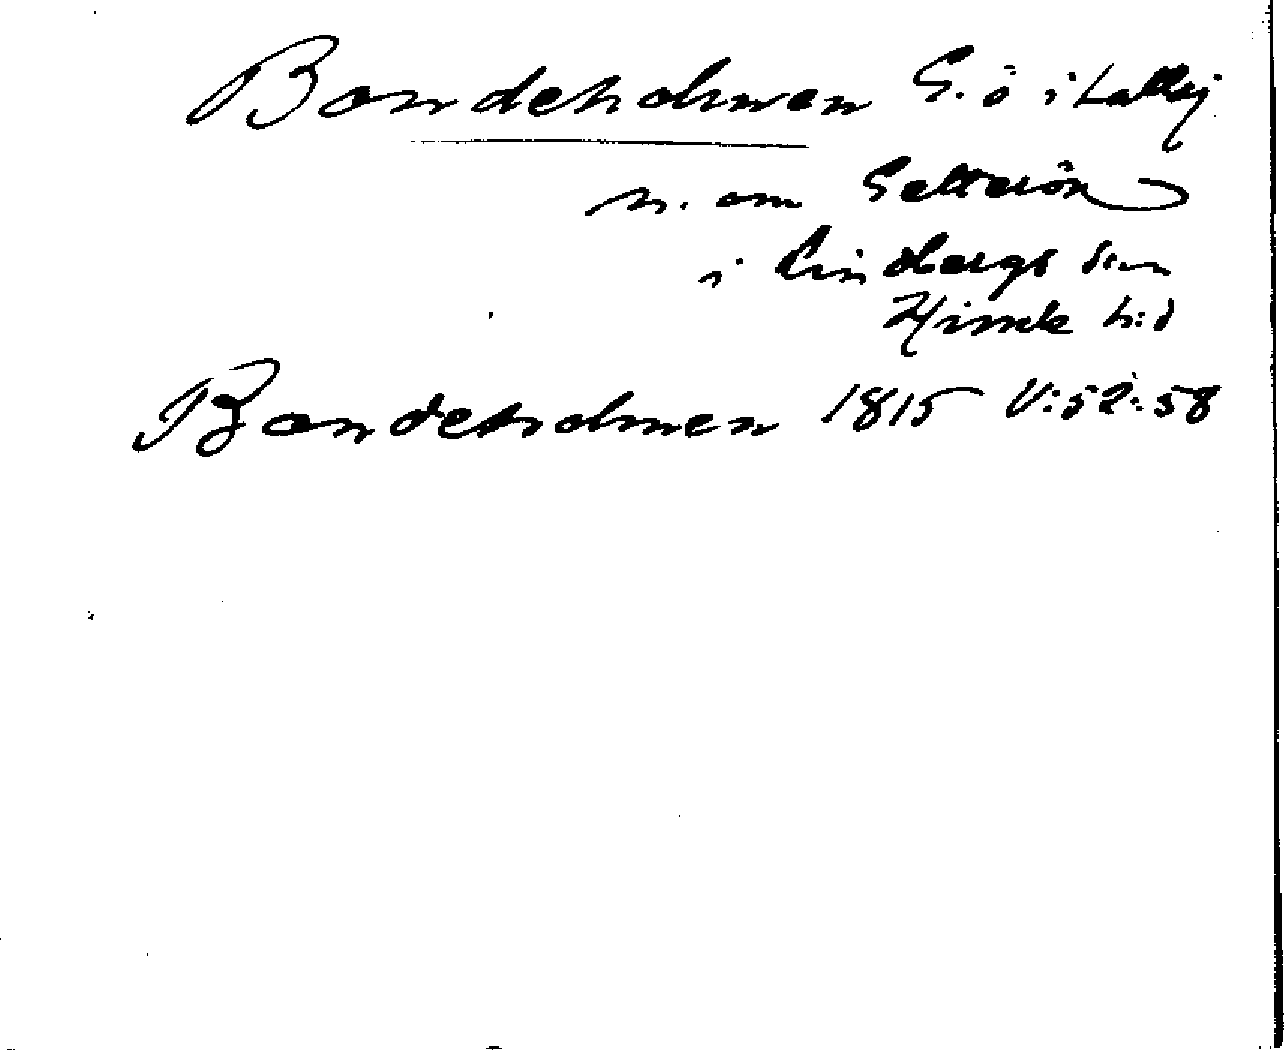 Bondeholmen G. ö i Katteg
n. om Getterön
i Lindbergs sn
Himle hd
Bondeholmen 1815 V:52:58